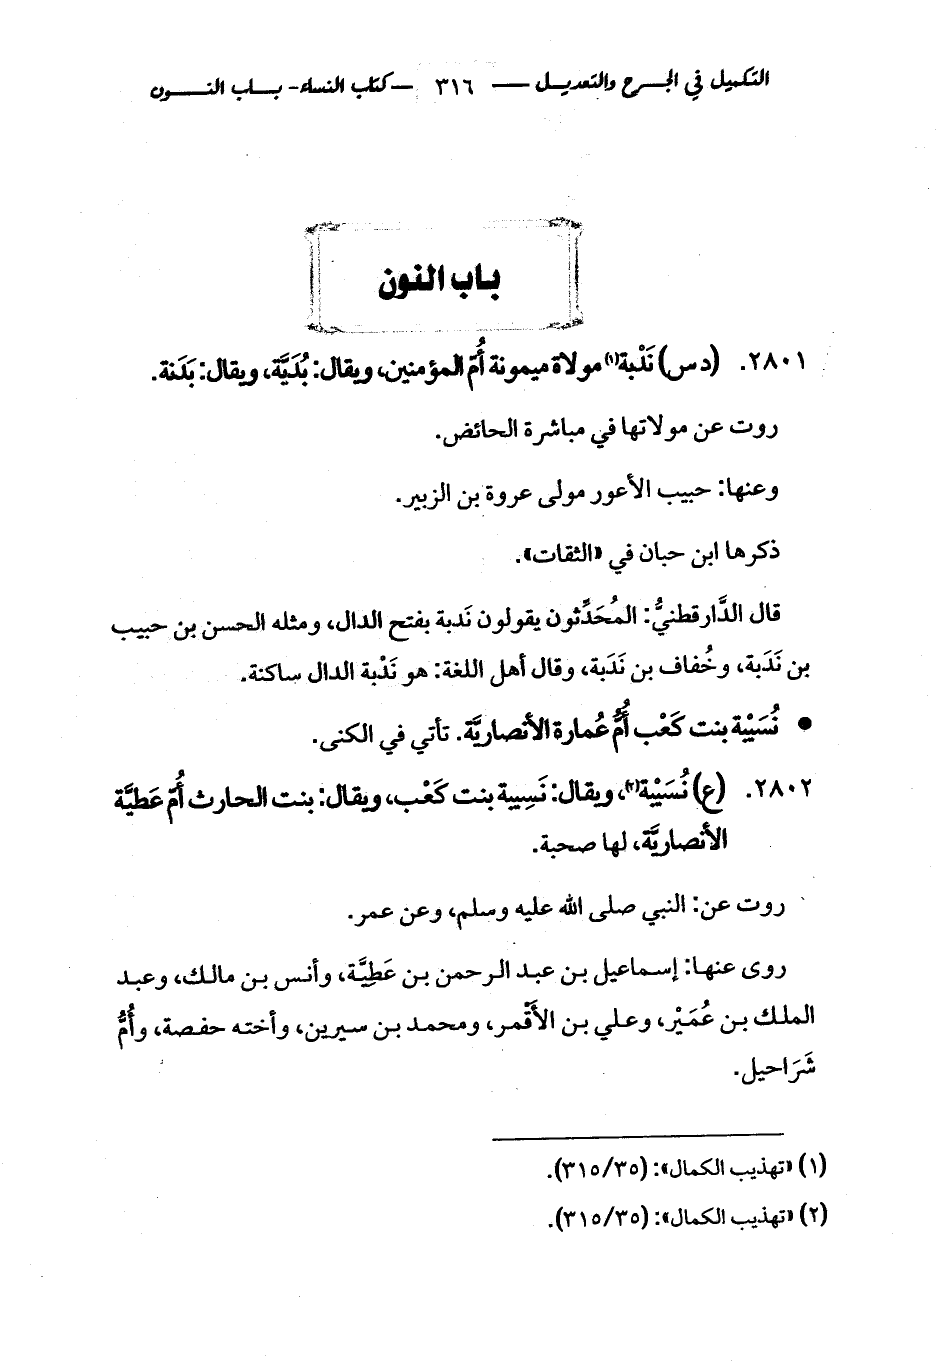 التكميل في الجرح والتعديل — ٣١٦ — كتاب النساء- باب النون
باب النون
٢٨٠١. (د س) نَدْبة(١) مولاة ميمونة أُمّ المؤمنين، ويقال: بُدَيَّة، ويقال: بَدَنة.
روت عن مولاتها في مباشرة الحائض.
وعنها: حبيب الأعور مولى عروة بن الزبير.
ذكرها ابن حبان في «الثقات».
قال الدَّارقطنيُّ: المُحَدِّثون يقولون نَدبة بفتح الدال، ومثله الحسن بن حبيب
بن نَدَبة، وخُفاف بن نَدَبة، وقال أهل اللغة: هو نَدْبة الدال ساكنة.
● نُسَيْبة بنت كَعْب أُمُّ عُمارة الأنصاريَّة. تأتي في الكنى.
٢٨٠٢. (ع) نُسَيْبة(٢)، ويقال: نَسِيبة بنت كَعْب، ويقال: بنت الحارث أُمّ عَطيَّة
الأنصاريَّة، لها صحبة.
روت عن: النبي صلى الله عليه وسلم، وعن عمر.
روى عنها: إسماعيل بن عبد الرحمن بن عَطِيَّة، وأنس بن مالك، وعبد
الملك بن عُمَيْر، وعلي بن الأَقْمر، ومحمد بن سيرين، وأخته حفصة، وأُمُّ
شَرَاحيل.
(١) «تهذيب الكمال»: (٣١٥/٣٥).
(٢) «تهذيب الكمال»: (٣١٥/٣٥).